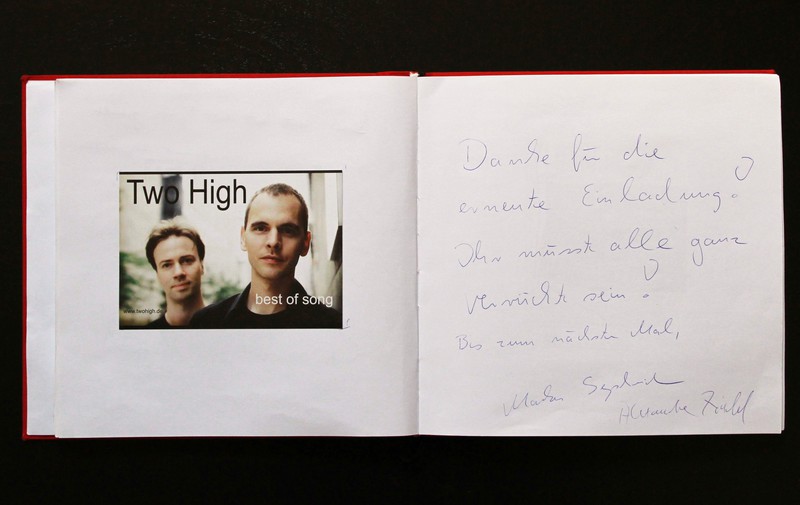 Two High
best of song
www.twohigh.de
Danke für die
erneute Einladung!
Ihr müsst alle ganz
verrückt sein!
Bis zum nächsten Mal,